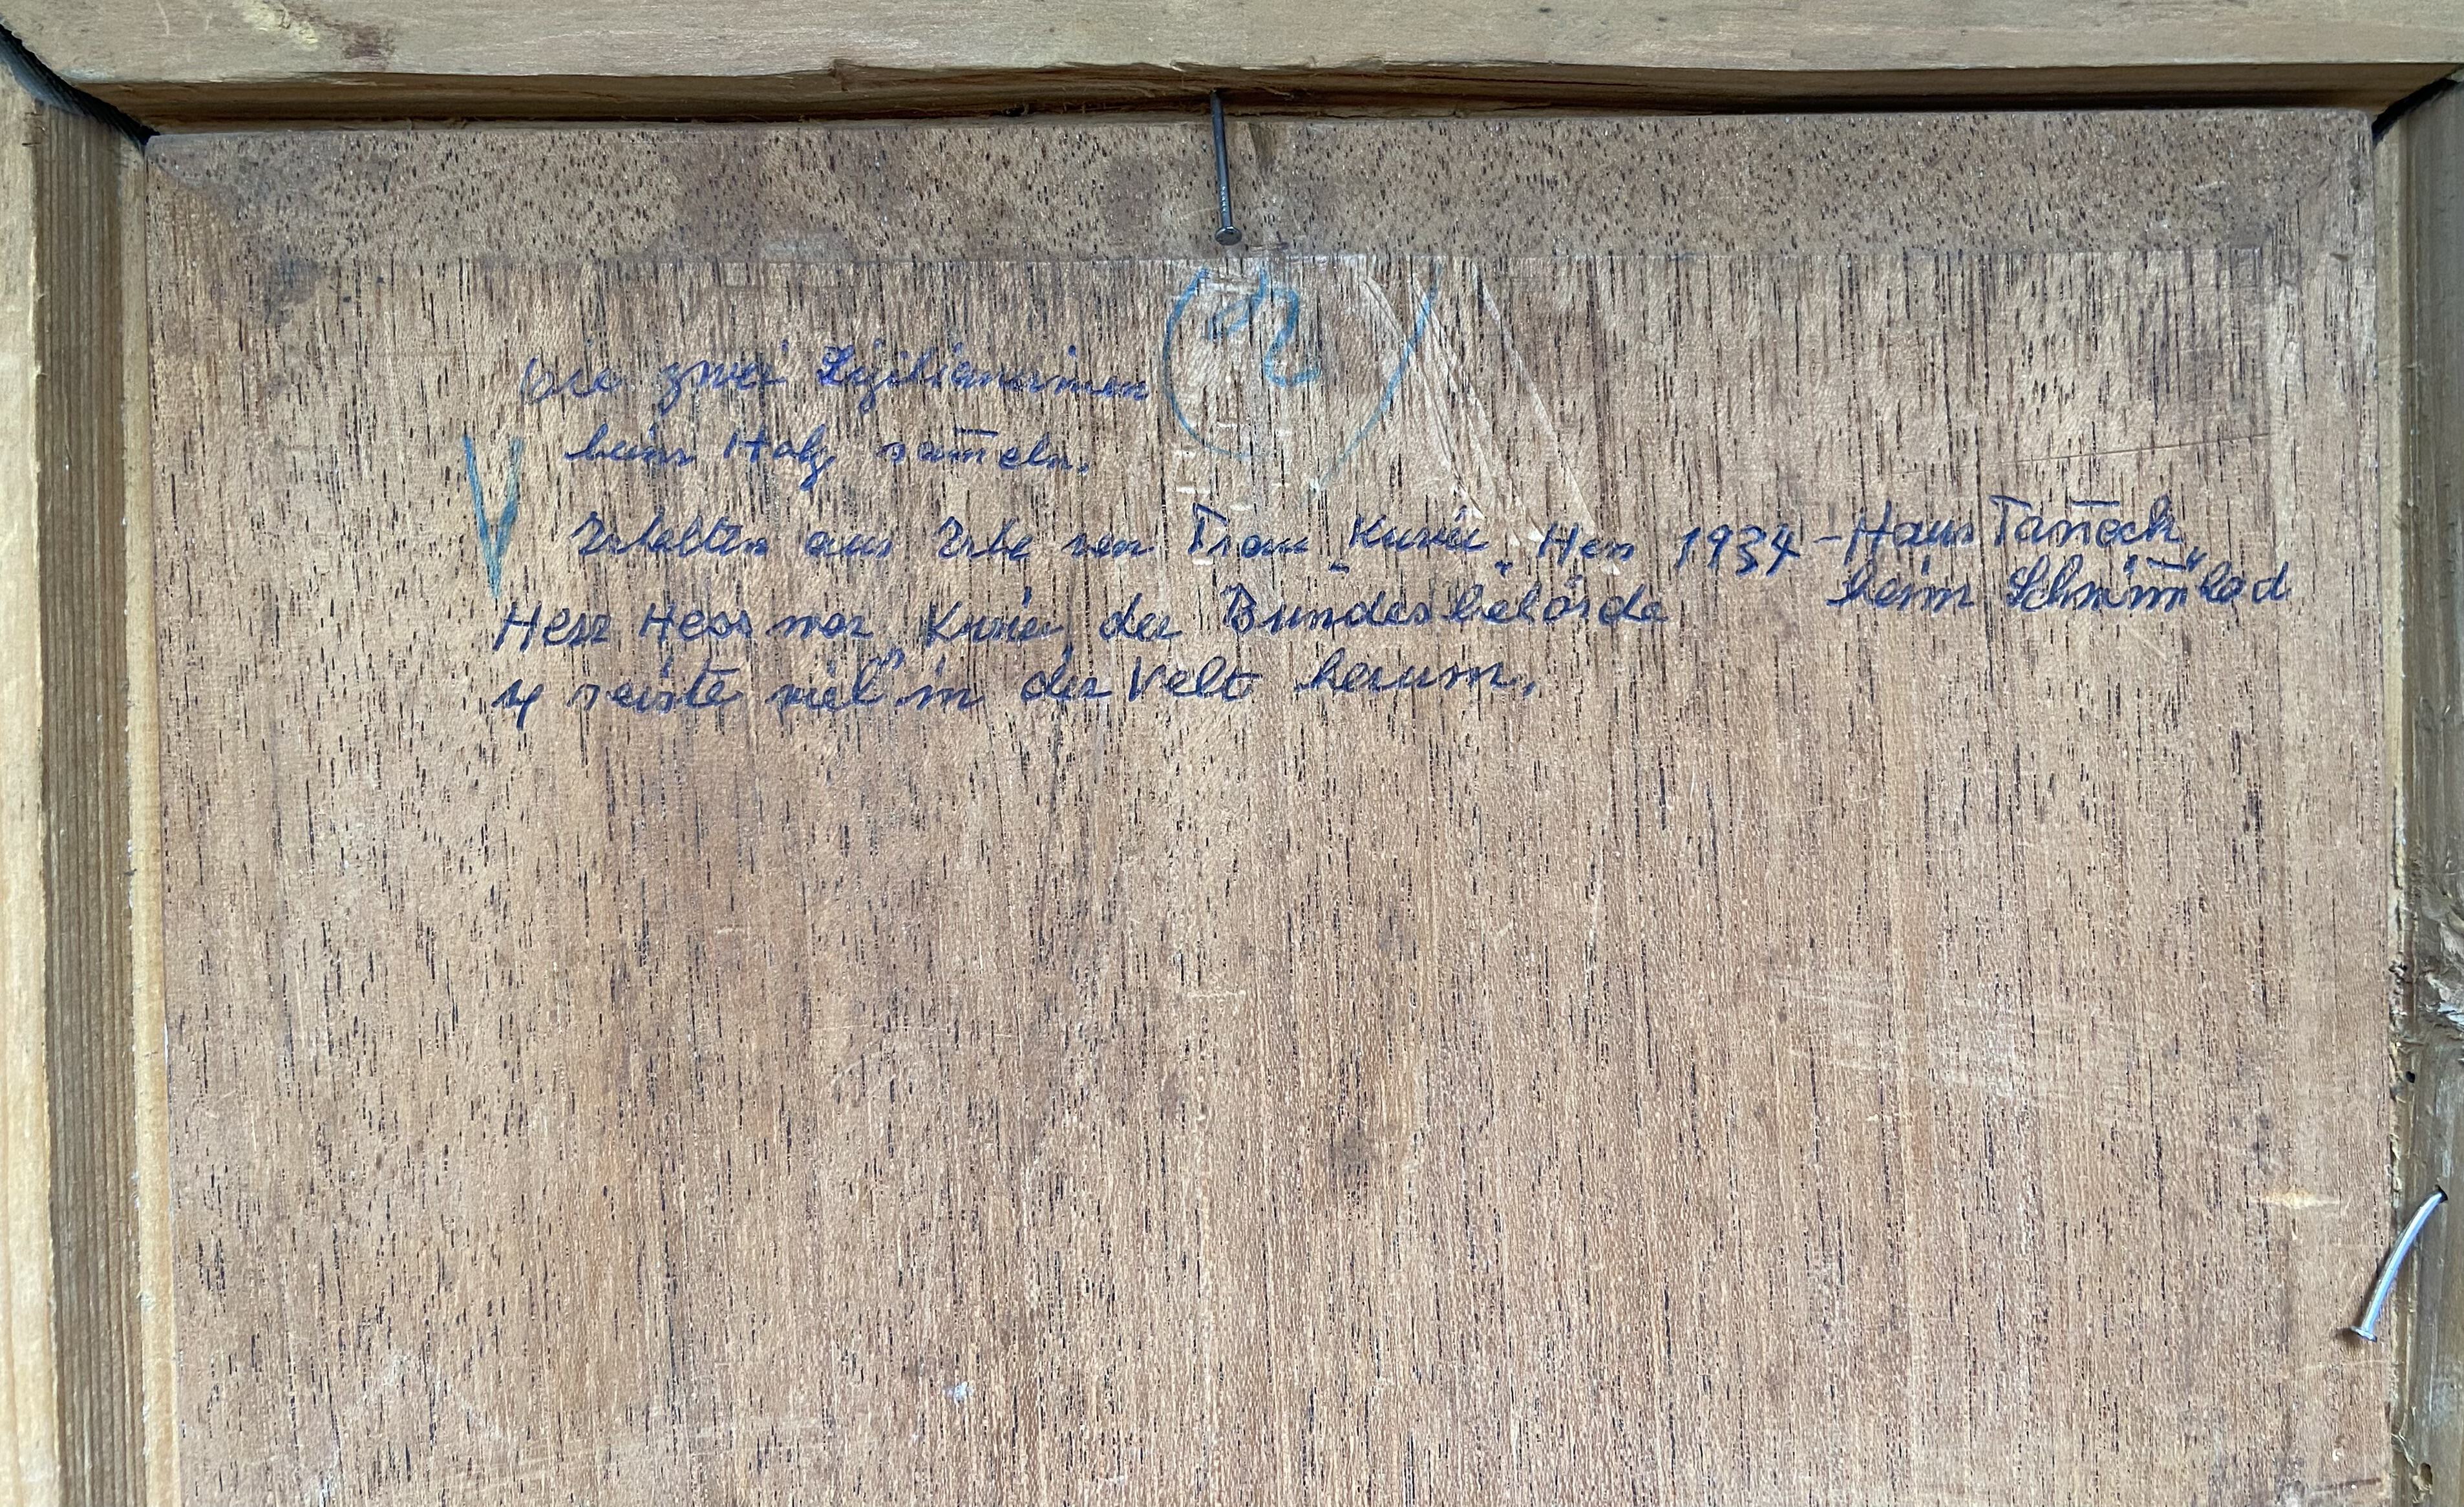 2
Die zwei Sizilianerinnen
beim Holz sam̄eln.
Erhalten aus Erbe von Frau "Kurier" Hess 1934 - Haus Tan̄eck
beim Schwim̄bad
Herr Hess war "Kurier" der Bundesbehörde
& reiste viel in der Welt herum.